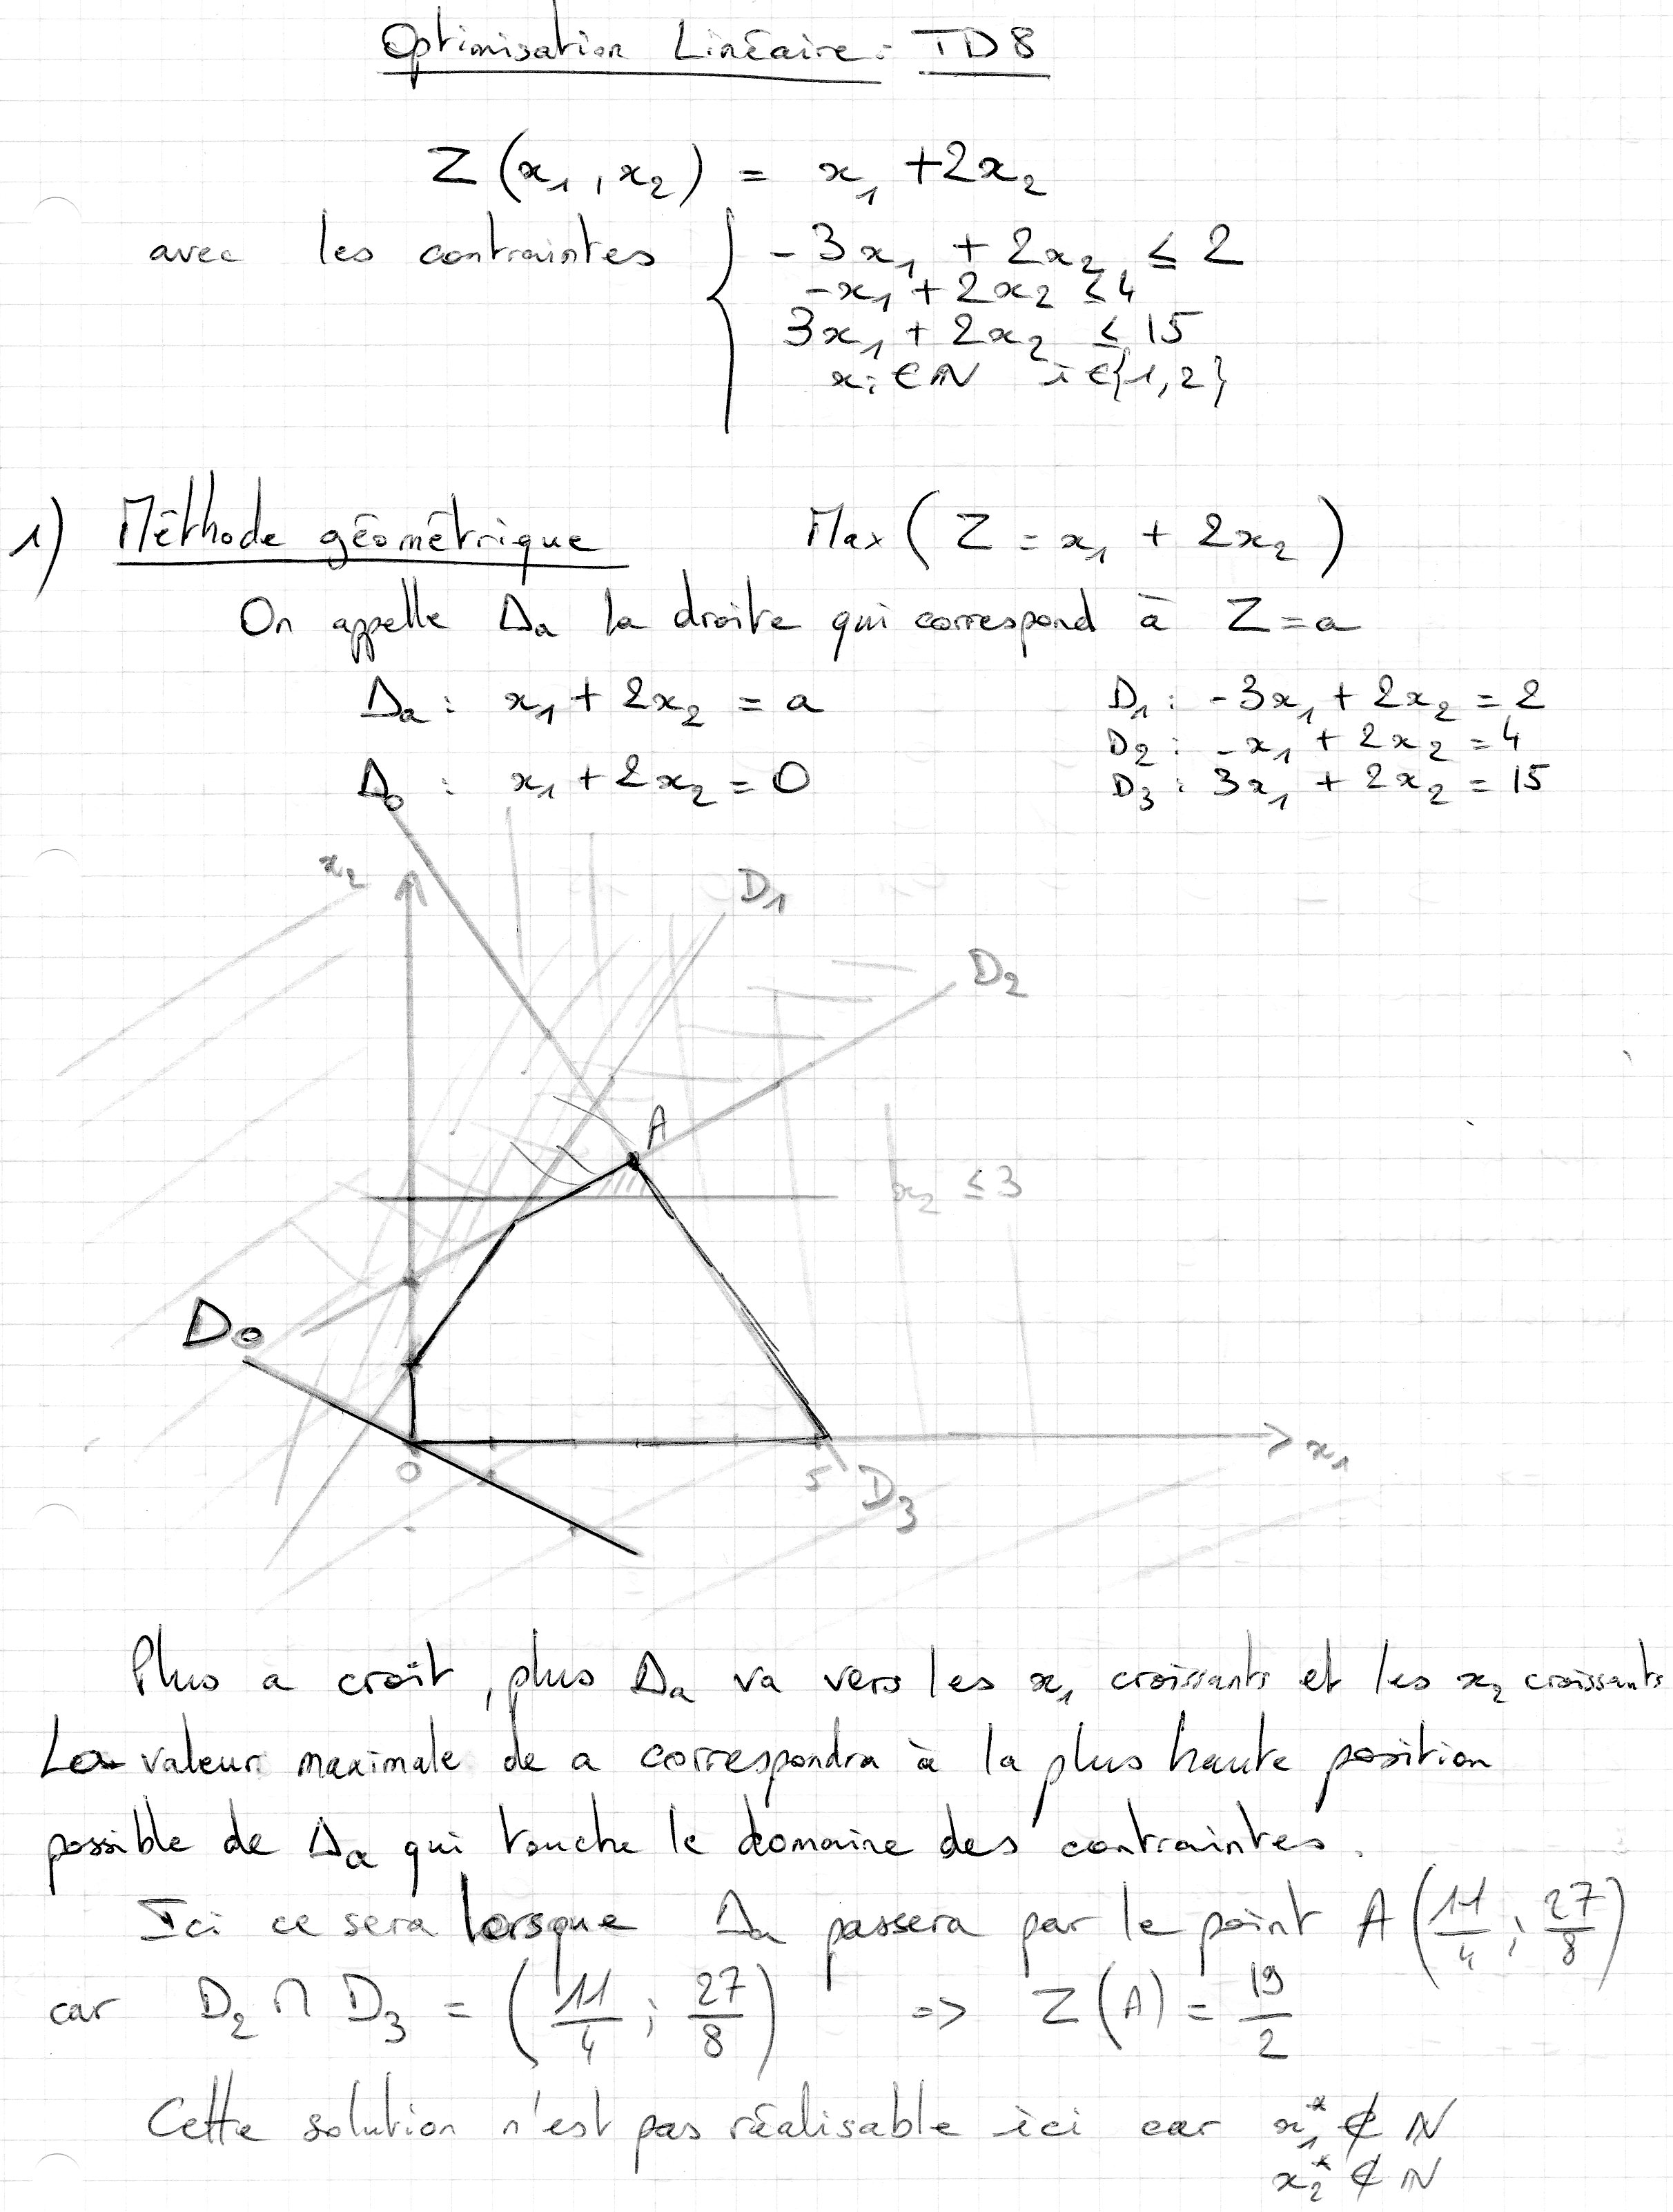 Optimisation Linéaire : TD8
Z(x₁, x₂) = x₁ + 2x₂
avec les contraintes { -3x₁ + 2x₂ ≤ 2
-x₁ + 2x₂ ≤ 4
3x₁ + 2x₂ ≤ 15
xᵢ ∈ ℕ i ∈ {1,2}
1) Méthode géométrique Max ( Z = x₁ + 2x₂ )
On appelle Δa la droite qui correspond à Z = a
Δa : x₁ + 2x₂ = a D₁ : -3x₁ + 2x₂ = 2
D₂ : -x₁ + 2x₂ = 4
Δ₀ : x₁ + 2x₂ = 0 D₃ : 3x₁ + 2x₂ = 15
x₂
D₁
D₂
A
x₂ ≤ 3
D₀
0 1 5 D₃ x₁
Plus a croît, plus Δa va vers les x₁ croissants et les x₂ croissants
La valeur maximale de a correspondra à la plus haute position
possible de Δa qui touche le domaine des contraintes.
Ici ce sera lorsque Δa passera par le point A (11/4 ; 27/8)
car D₂ ∩ D₃ = (11/4 ; 27/8) => Z(A) = 19/2
Cette solution n'est pas réalisable ici car x₁* ∉ ℕ
x₂* ∉ ℕ